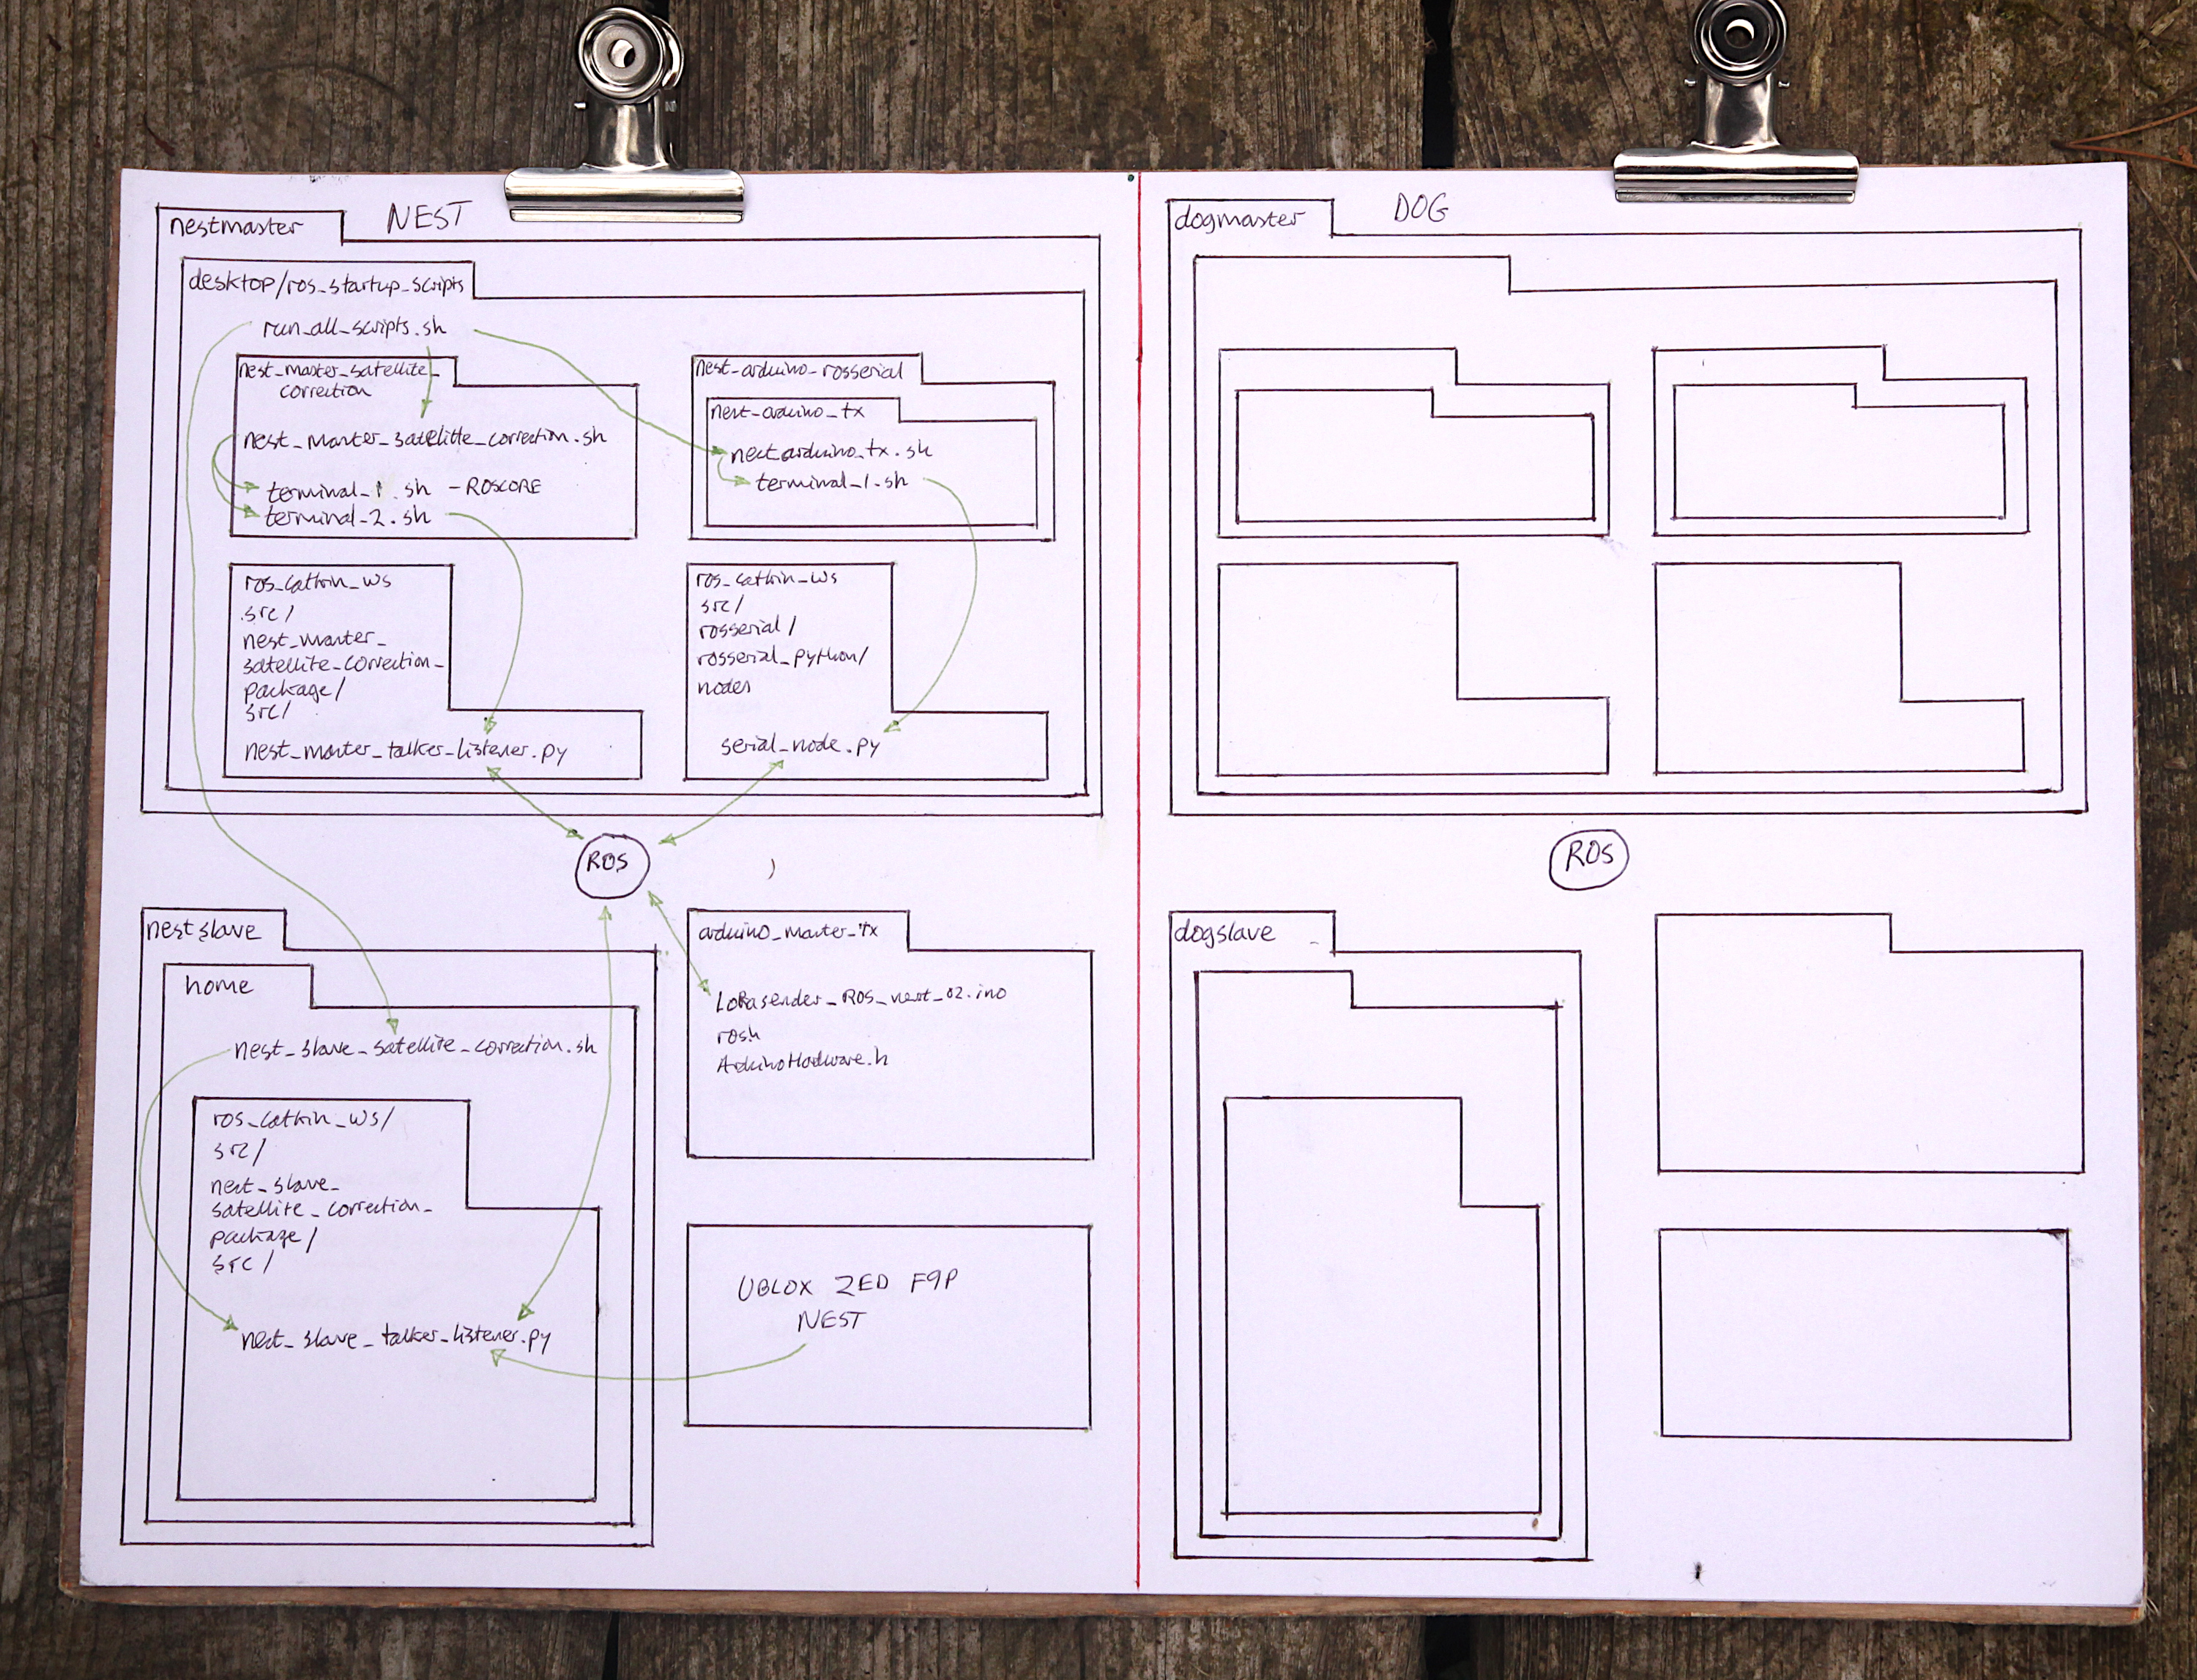 NEST
nestmaster
desktop/ros_startup_scripts
run_all_scripts.sh
nest_master_satellite_
correction
nest_master_satellite_correction.sh
terminal_1.sh - ROSCORE
terminal_2.sh
nest_arduino_rosserial
nest_arduino_tx
nest_arduino_tx.sh
terminal_1.sh
ros_catkin_ws
src/
nest_master_
satellite_correction_
package/
src/
nest_master_talker_listener.py
ros_catkin_ws
src/
rosserial/
rosserial_python/
nodes
serial_node.py
ROS
nestslave
home
nest_slave_satellite_correction.sh
ros_catkin_ws/
src/
nest_slave_
satellite_correction_
package/
src/
nest_slave_talker_listener.py
arduino_master_tx
LoRasender_ROS_nest_02.ino
ros.h
ArduinoHardware.h
UBLOX ZED F9P
NEST
DOG
dogmaster
ROS
dogslave